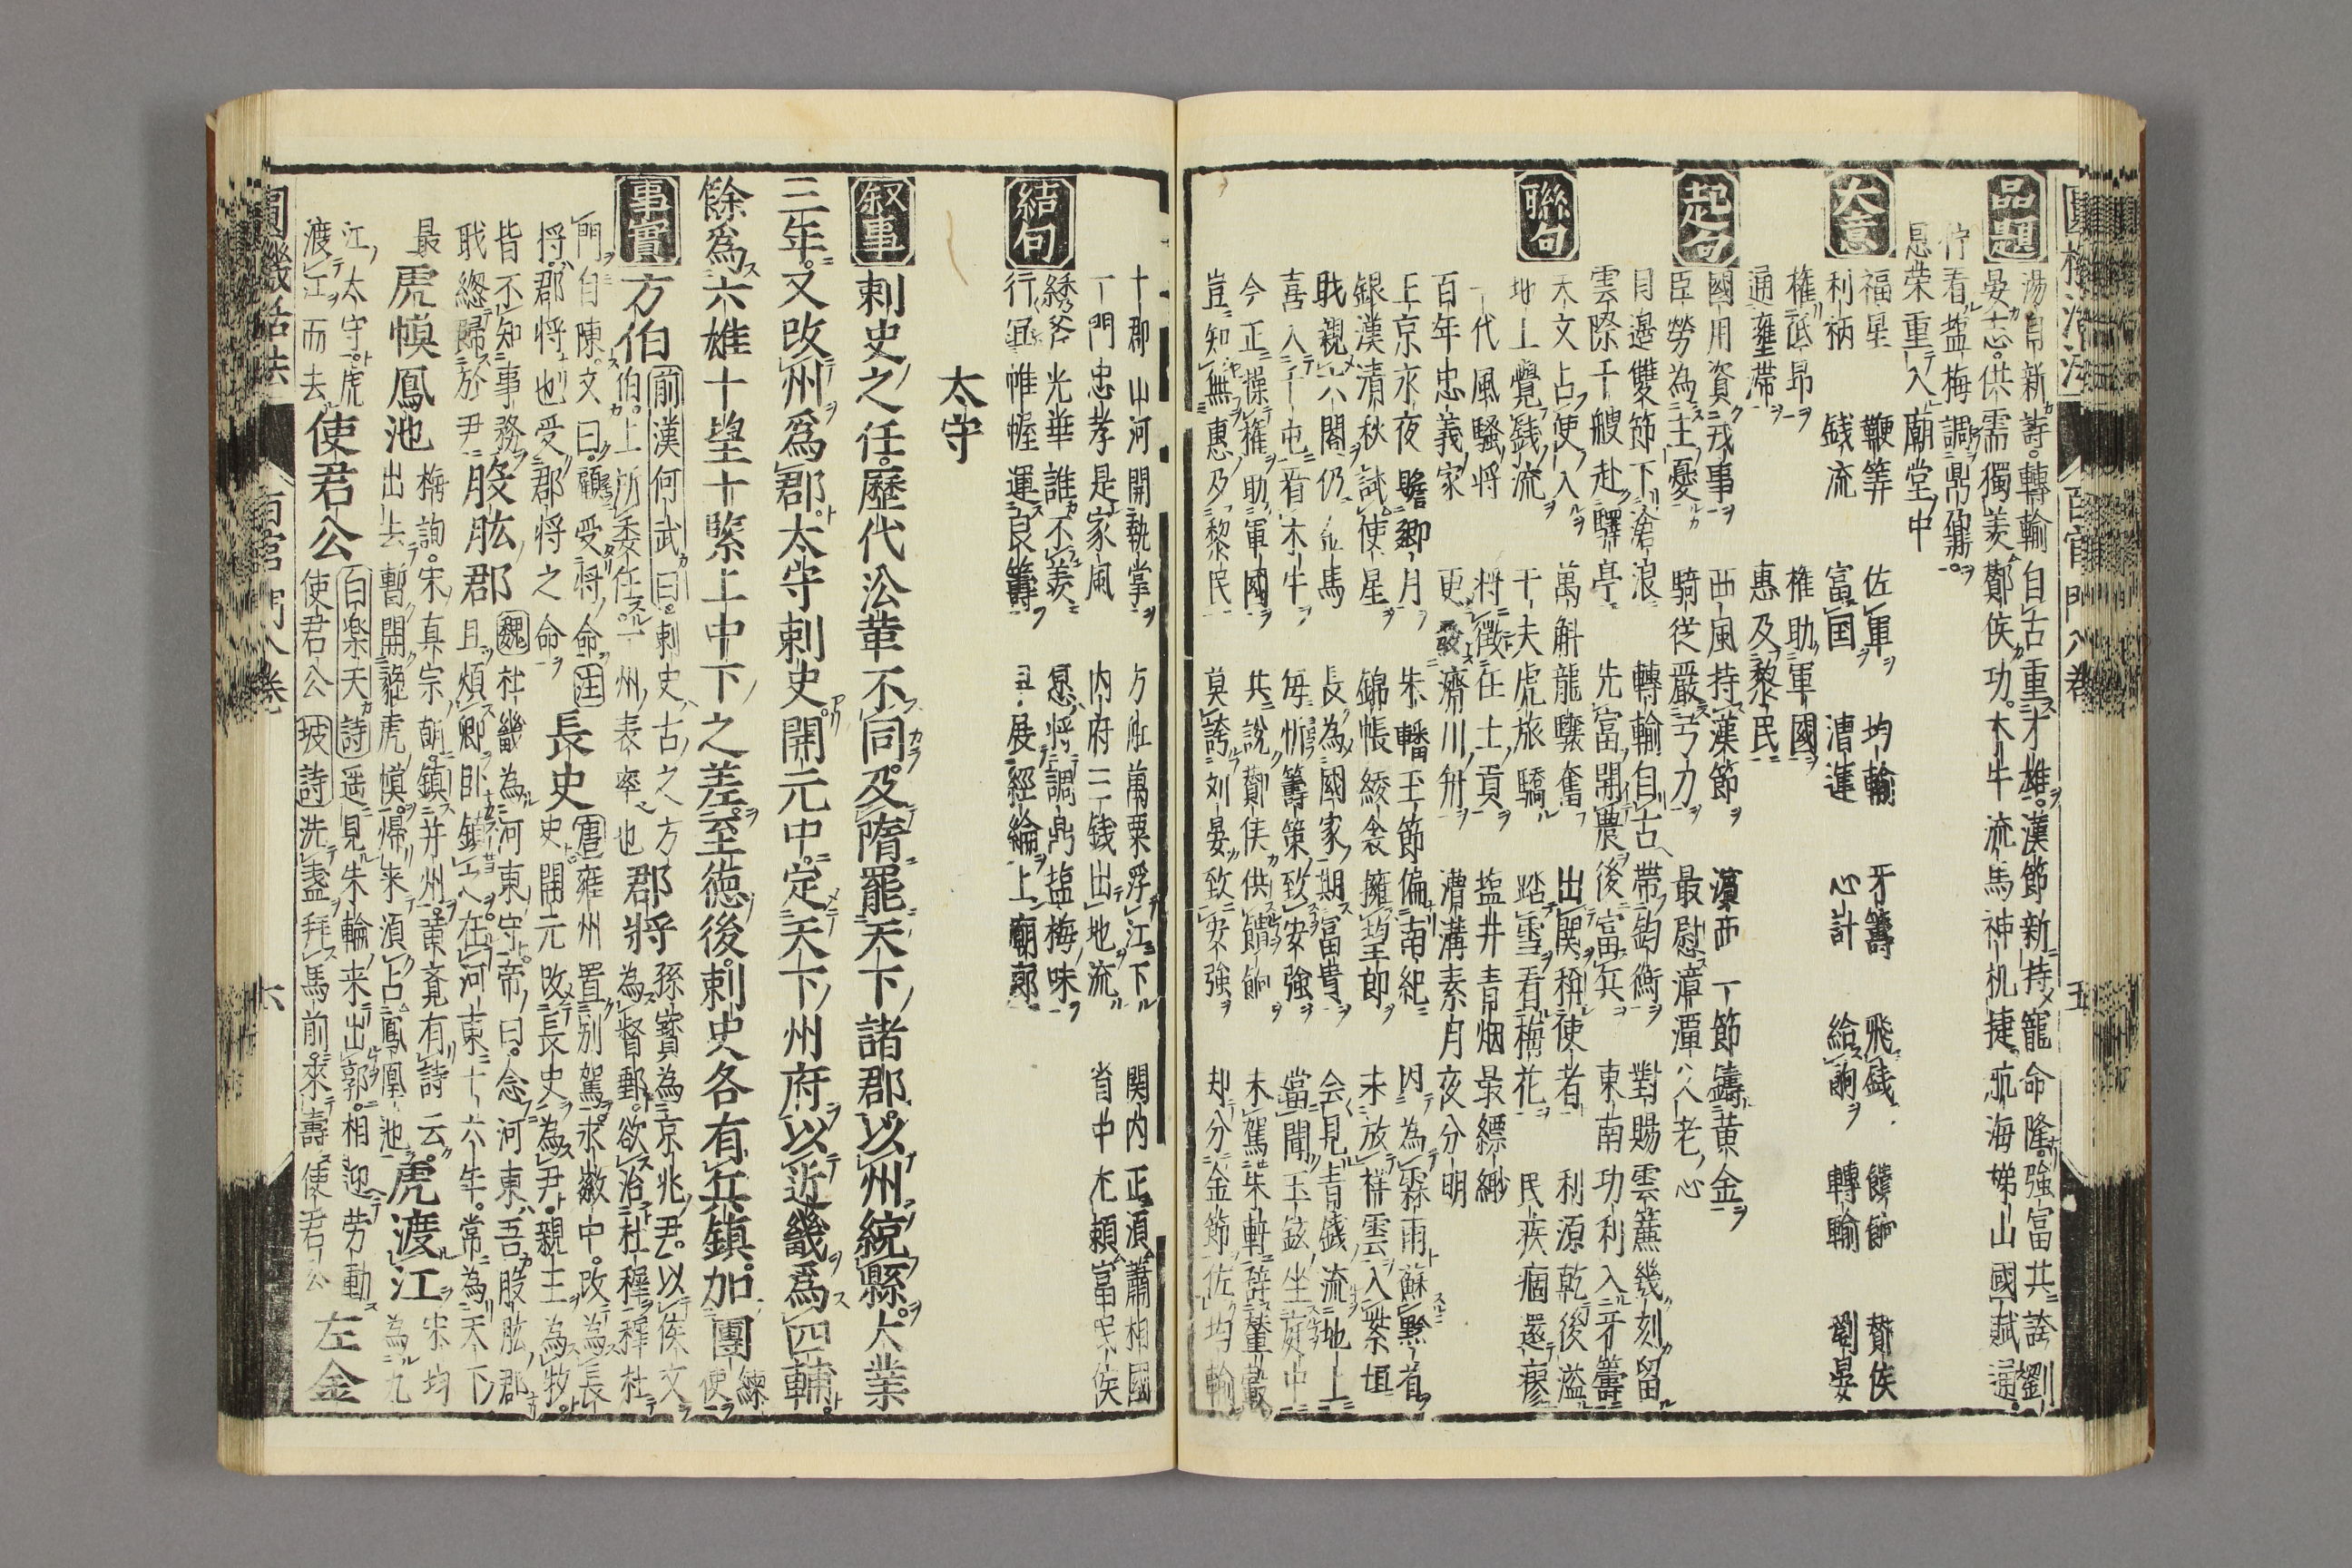 品題
湯自新詩轉輸自古重才雄漢節新持寵命隆強富共誇劉
晏志供需獨羨酇侯功木牛流馬神机捷航海娣山國賦通
佇看塩梅調鼎鼐
恩荣重入廟堂中
大意
福星 鞭筭 佐軍 均輸 牙籌 飛錢 饋餉 酇侯
利柄 錢流 富国 漕運 心計 給餉 轉輸 劉晏
權低昂 權助軍國
通壅滞 惠及黎民
起句
國用資戎事 西風持漢節 濵西一節鑄黄金
臣勞為主憂 騎従嚴弓刀 最慰漳潭八人老心
月邊雙節下滄浪 轉輸自古帶鈞衡 對賜雲簾幾刻留
雲際千艘赴驛亭 先富開農後富兵 東南功利入牙籌
聯句
天文占使入 萬斛龍驤奮 出関稱使者 利源乾後溢
地上覺錢流 千夫虎旅驕 踏雪看梅花 民疾痼還瘳
一代風騷将 将徴任土貢 塩井青烟最縹緲
百年忠義家 更發濟川舟 漕溝素月夜分明
上京永夜瞻卿月 朱轓玉節偏南紀 因為霖雨蘇黔首
銀漢清秋試使星 錦帳綾衾擁望郎 未放祥雲入紫垣
戢親六閣仍金馬 長為國家期富貴 会見青錢流地上
喜入千屯看木牛 毎忻籌策致安強 當聞玉鉉坐庭中
今正操權助軍國 共説酇侯供饋餉 未駕朱軒辞輦轂
豈知無惠及黎民 莫誇刘晏致安強 却分金節佐均輸
圓機活法 百官門八巻 五
十郡山河開執掌 方舡萬粟浮江下 関内正湏蕭相國
一門忠孝是家風 内府三錢出地流 省中尤頼富民侯
結句
綉斧光華誰不羨 恩将調鼎塩梅味
行冝帷幄運良籌 且展經綸上廟郎
太守
叙事
刺史之任歴代㳂革不同及隋罷天下諸郡以州統縣大業
三年又改州爲郡太守刺史開元中定天下州府以近畿爲四輔
餘爲六雄十望十緊上中下之差至徳後刺史各有兵鎮加團練使
事實
方伯 前漢何武曰刺史古之方
伯上所委任一州表率也 郡将 孫寳為京兆尹以侯文
為督郵欲治杜穉穉杜
門自陳文曰顧受将命注
将郡将也受郡将之命 長史 唐雍州置別駕永徽中改為長
史開元改長史為尹親王為牧
皆不知事務
戢緫歸於尹 股肱郡 魏杜畿為河東守帝曰念河東吾股肱郡
且煩卿卧鎮之在河東十六年常為天下
最 虎幀鳳池 梅詢宋真宗朝鎮并州黄亢有詩云
出去暫開貔虎幀帰来湏占鳳凰池 虎渡江 宋均
為九
江太守虎
渡江而去 使君公 白楽天詩遥見朱輪来出郭相迎労動
使君公坡詩洗盞拜馬前来壽使君公 左金
圓機活法 百官門八巻 六